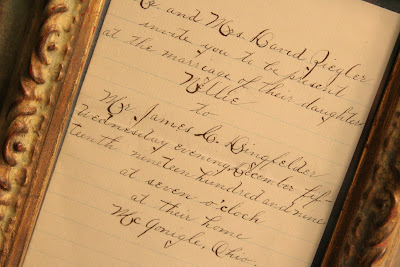 Mr. and Mrs. David Ziegler
invite you to be present
at the marriage of their daughter
Nellie
to
Mr. James C. Dingfelder
Wednesday evening, December fif-
teenth nineteen hundred and nine
at seven o'clock
at their home
McGonigle, Ohio.